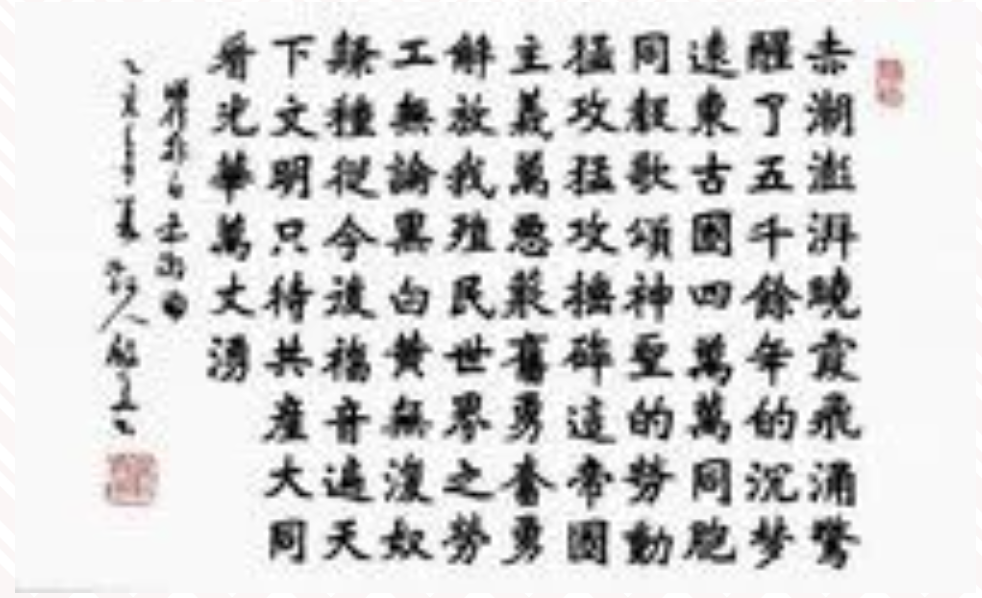 赤潮澎湃曉霞飛涌驚
醒了五千餘年的沉梦
遠東古國四萬萬同胞
同聲歌頌神聖的勞動
猛攻猛攻捶碎這帝國
主義萬惡叢舊勇奮勇
解放我殖民世界之勞
工無論黑白黄無復奴
隸種從今後福音遍天
下文明只待共產大同
看光華萬丈湧